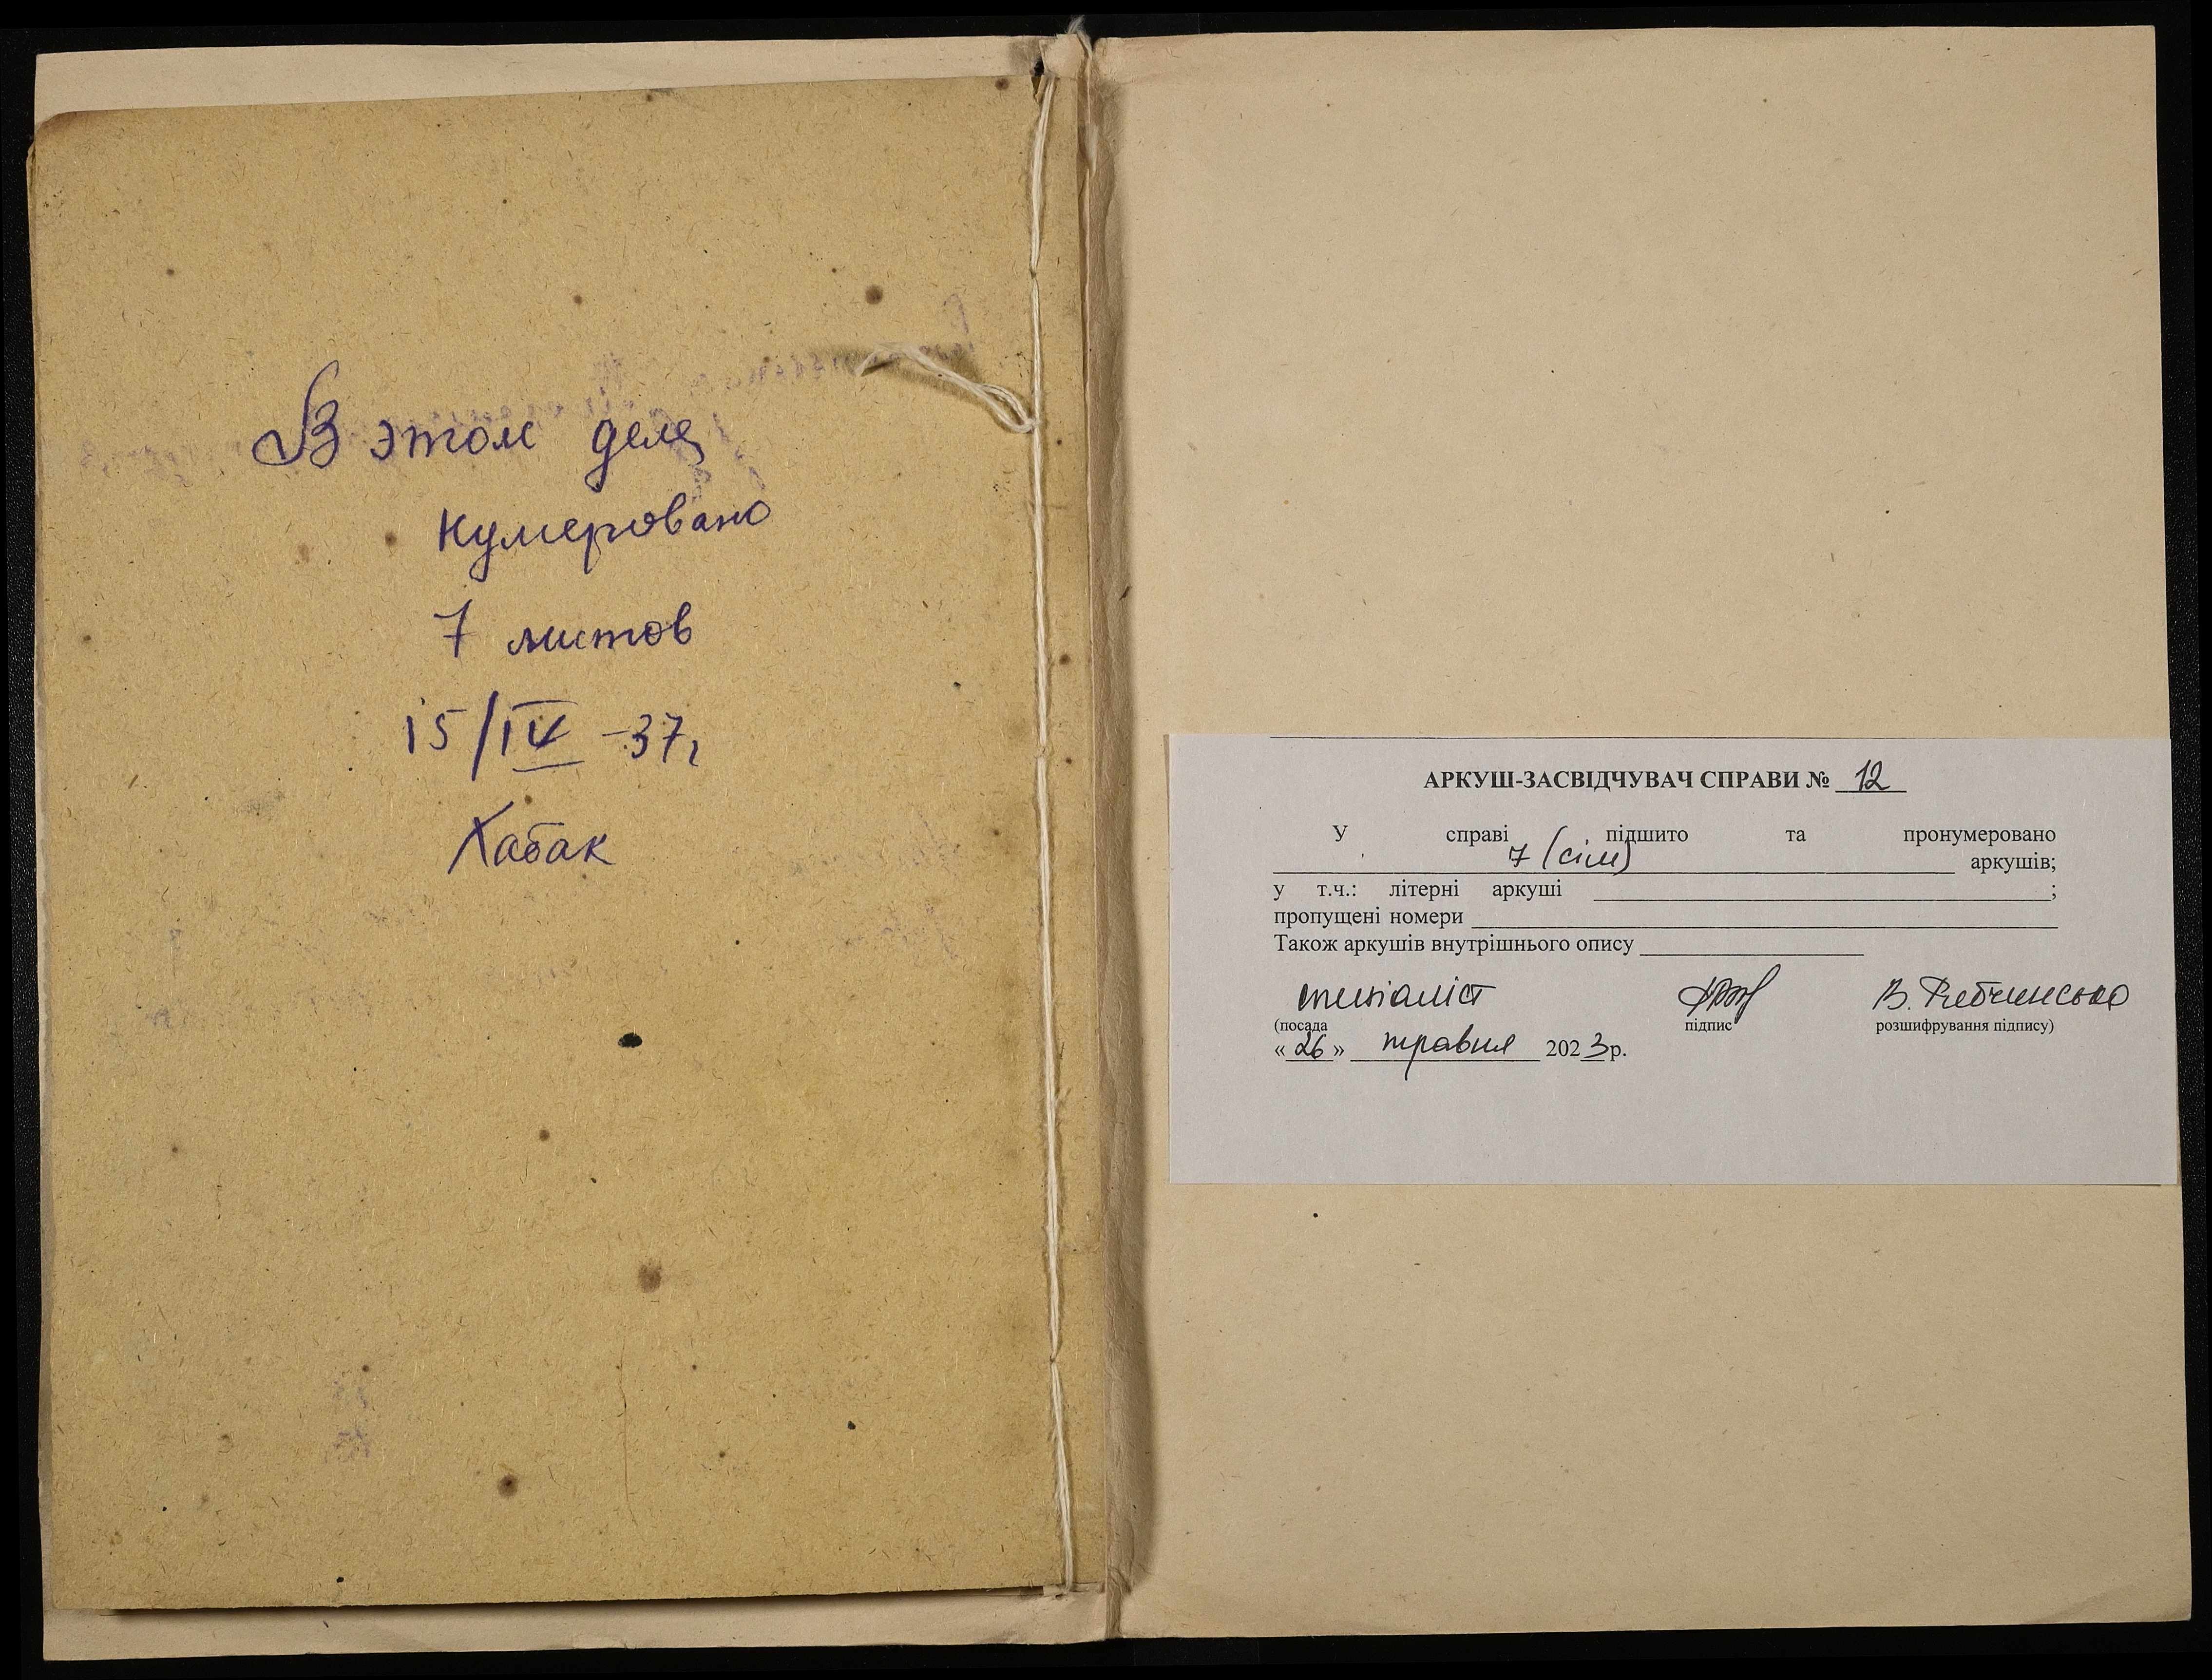 В этом деле
нумеровано
7 листов
15/IV -37г
Хабак
АРКУШ-ЗАСВІДЧУВАЧ СПРАВИ № 12
У справі підшито та пронумеровано
7 (сім) аркушів;
у т.ч.: літерні аркуші ;
пропущені номери
Також аркушів внутрішнього опису
спеціаліст В.
(посада підпис розшифрування підпису)
« 26 » травня 2023 р.